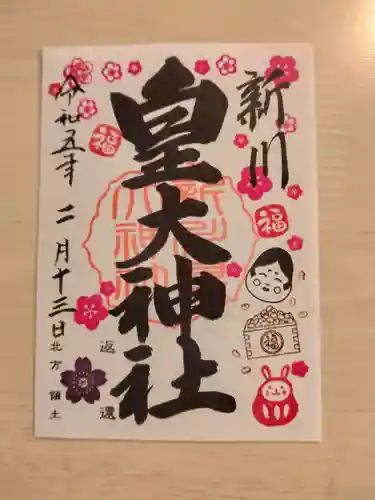 新川
福
皇大神社
福
福
令和五年 二月十三日
北方領土
返還